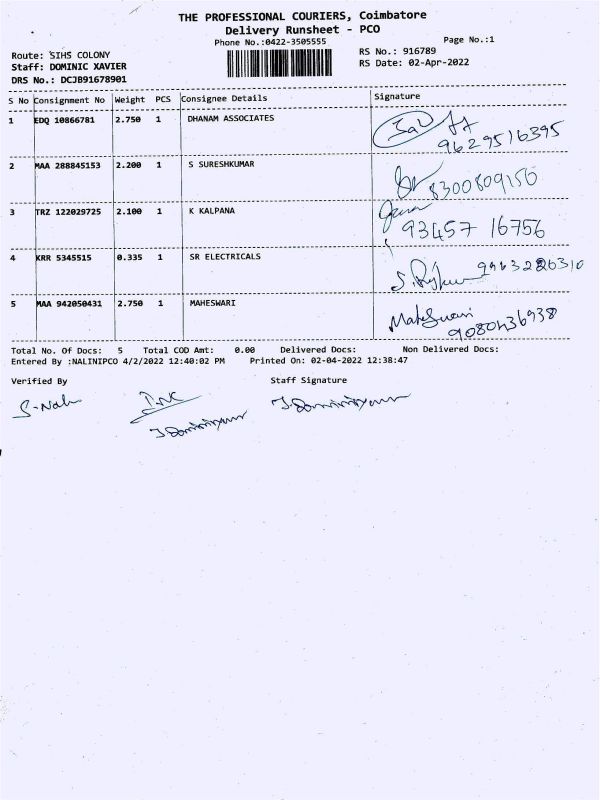 THE PROFESSIONAL COURIERS, Coimbatore
Delivery Runsheet - PCO
Phone No.:0422-3505555 Page No.:1
Route: SIHS COLONY RS No.: 916789
Staff: DOMINIC XAVIER RS Date: 02-Apr-2022
DRS No.: DCJB91678901
S No Consignment No Weight PCS Consignee Details Signature
1 EDQ 10866781 2.750 1 DHANAM ASSOCIATES
9629516395
2 MAA 288845153 2.200 1 S SURESHKUMAR
8300809156
3 TRZ 122029725 2.100 1 K KALPANA
93457 16756
4 KRR 5345515 0.335 1 SR ELECTRICALS
5 MAA 942050431 2.750 1 MAHESWARI Maheswari
9080436938
Total No. Of Docs: 5 Total COD Amt: 0.00 Delivered Docs: Non Delivered Docs:
Entered By :NALINIPCO 4/2/2022 12:40:02 PM Printed On: 02-04-2022 12:38:47
Verified By Staff Signature